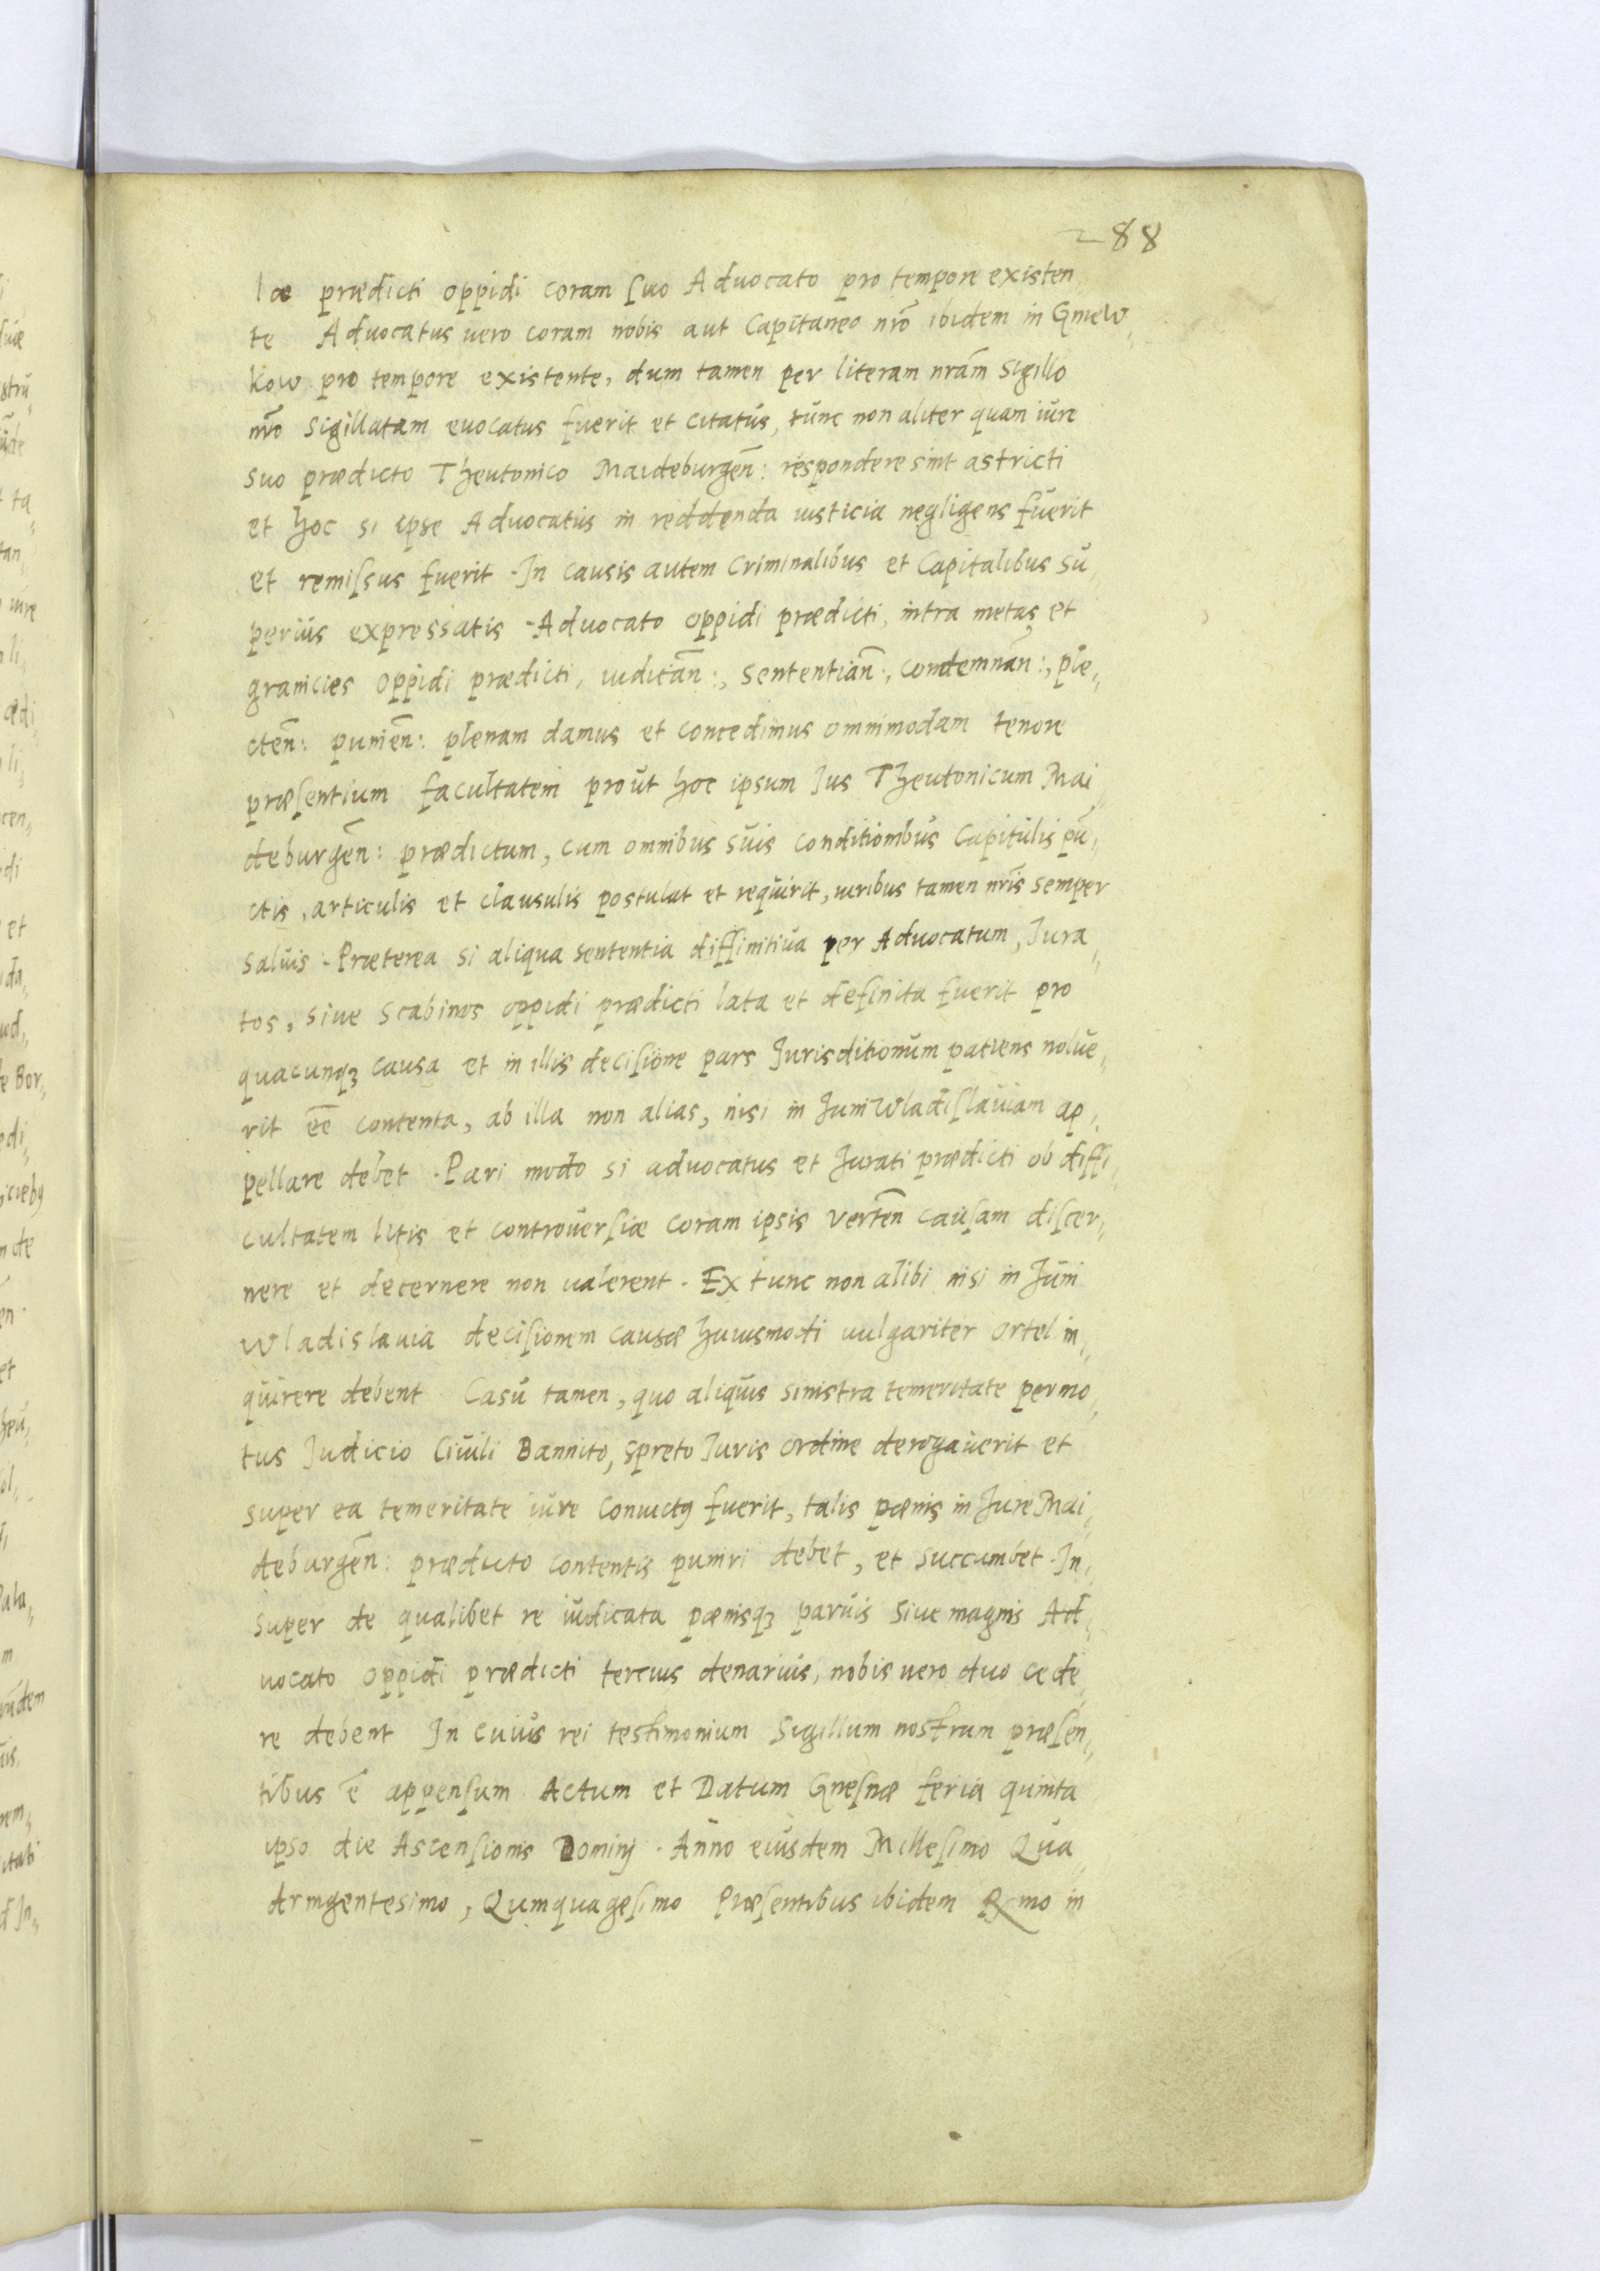 288
læ prædicti oppidi coram suo Advocato pro tempore existen,
te Advocatus vero coram nobis aut Capitaneo nrõ ibidem in Gniew,
kow pro tempore existente, dum tamen per literam nrãm sigillo
nrõ sigillatam euocatus fuerit et citatus, tunc non aliter quam iure
suo prædicto Theutonico Maideburgen̄: respondere sint astricti
et hoc si ipse Advocatus in reddenda iusticia negligens fuerit
et remissus fuerit. In causis autem Criminalibus et Capitalibus su,
perius expressatis Advocato oppidi prædicti, intra metas et
granicies oppidi prædicti, iudican̄:, sententian̄:, condemnan̄:, ple,
cten̄: punien̄: plenam damus et concedimus omnimodam tenore
præsentium facultatem prout hoc ipsum Ius Theutonicum Mai,
deburgen̄: prædictum, cum omnibus suis conditionibus Capitulis pū,
ctis, articulis et clausulis postulat et requirit, iuribus tamen nrīs semper
saluis. Præterea si aliqua sententia diffinitiua per Advocatum, Iura,
tos, siue Scabinos oppidi prædicti lata et definita fuerit pro
quacunqꝫ causa et in illis decisione pars Iurisditionum patiens nolue,
rit ēē contenta, ab illa non alias, nisi in Iuniwladislauiam ap,
pellare debet. Pari modo si advocatus et Iurati prædicti ob diffi,
cultatem litis et controuersiæ coram ipsis verten̄ causam discer,
nere et decernere non ualerent. Ex tunc non alibi nisi in Iuni
wladislauia decisionem causæ huiusmodi uulgariter ortel in,
quirere debent Casu tamen, quo aliquis sinistra temeritate permo,
tus Iudicio Ciuili Bannito, spreto Iuris ordine derogauerit et
super ea temeritate iure conuictꝰ fuerit, talis pænis in Iure Mai,
deburgen̄: prædicto contentis puniri debet, et succumbet. In,
super de qualibet re iudicata pænisqꝫ paruis siue magnis Ad,
uocato oppidi prædicti tercius denarius, nobis uero duo cede,
re debent In cuius rei testimonium Sigillum nostrum præsen,
tibus ē appensum Actum et Datum Gnesnæ feria quinta
ipso die Ascensionis Dominj. Anno eiusdem Millesimo Qua,
dringentesimo, Quinquagesimo Præsentibus ibidem Rmo in